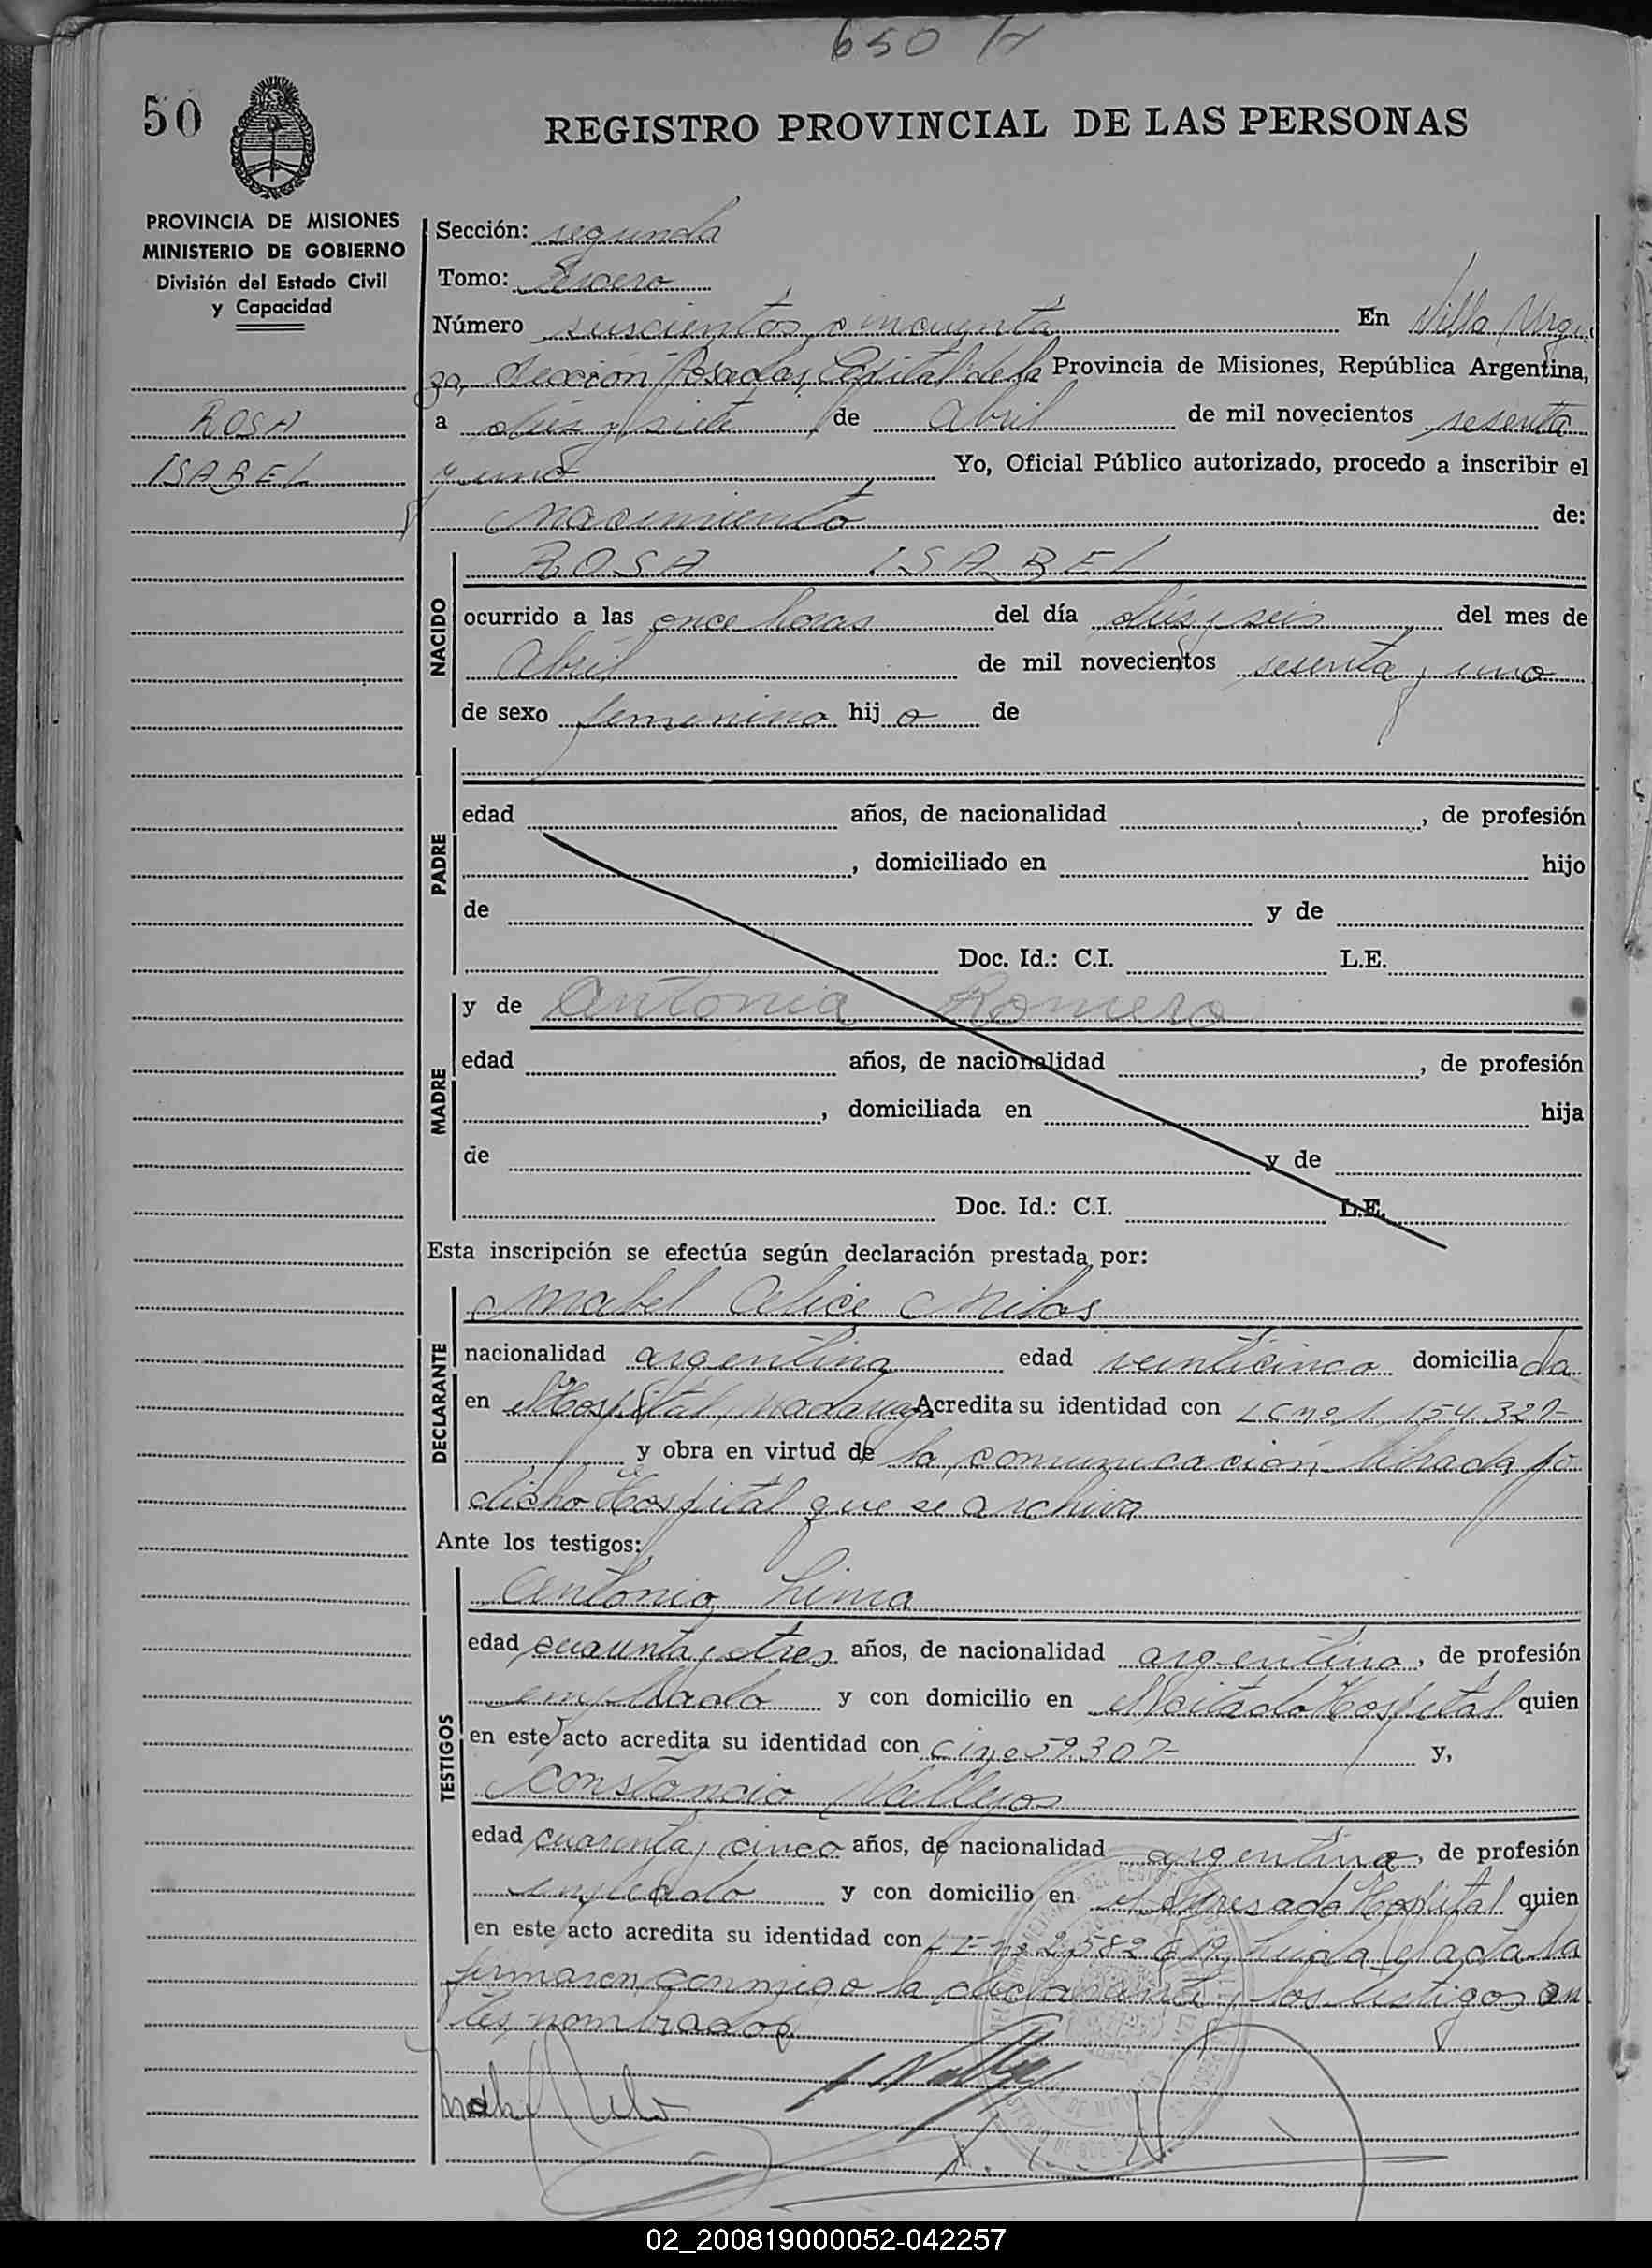 650
50
REGISTRO PROVINCIAL DE LAS PERSONAS
PROVINCIA DE MISIONES
MINISTERIO DE GOBIERNO
División del Estado Civil
y Capacidad
ROSA
ISABEL
Sección: segunda
Tomo: Tercero
Número seiscientos cincuenta En Villa Urqui
za, Sección Posadas, Capital de la Provincia de Misiones, República Argentina,
a diez y siete de Abril de mil novecientos sesenta
y uno Yo, Oficial Público autorizado, procedo a inscribir el
nacimiento de:
NACIDO
ROSA ISABEL
ocurrido a las once horas del día diez y seis del mes de
Abril de mil novecientos sesenta y uno
de sexo femenino hij a de
PADRE
edad años, de nacionalidad , de profesión
, domiciliado en hijo
de y de
Doc. Id.: C.I. L.E.
MADRE
y de Antonia Romero
edad años, de nacionalidad , de profesión
, domiciliada en hija
de y de
Doc. Id.: C.I. L.E.
Esta inscripción se efectúa según declaración prestada por:
DECLARANTE
Mabel Celice
nacionalidad argentina edad veinticinco domicilia da
en el Hospital Madariaga Acredita su identidad con LC nº 1.154.327-
y obra en virtud de la comunicación librada po
dicho Hospital que se archiva
Ante los testigos:
TESTIGOS
Antonio Lima
edad cuarenta y tres años, de nacionalidad argentino, de profesión
empleado y con domicilio en el citado Hospital quien
en este acto acredita su identidad con C I nº 59.307- y,
Constancio Vallejos
edad cuarenta y cinco años, de nacionalidad argentina, de profesión
empleado y con domicilio en el expresado Hospital quien
en este acto acredita su identidad con L E nº 2.582.619, Leída el acta la
firmaron conmigo la declarante y los testigos an
tes nombrados
02_200819000052-042257